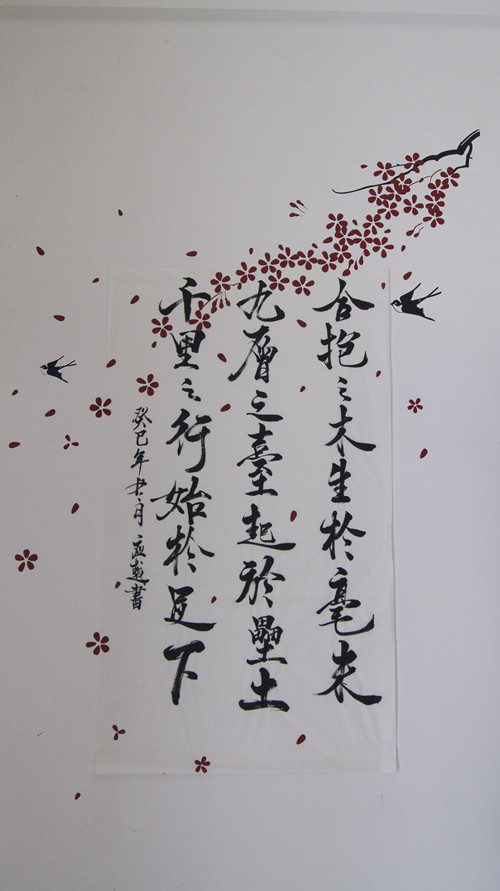 合抱之木生於毫末
九層之臺起於壘土
千里之行始於足下
癸巳年月越書